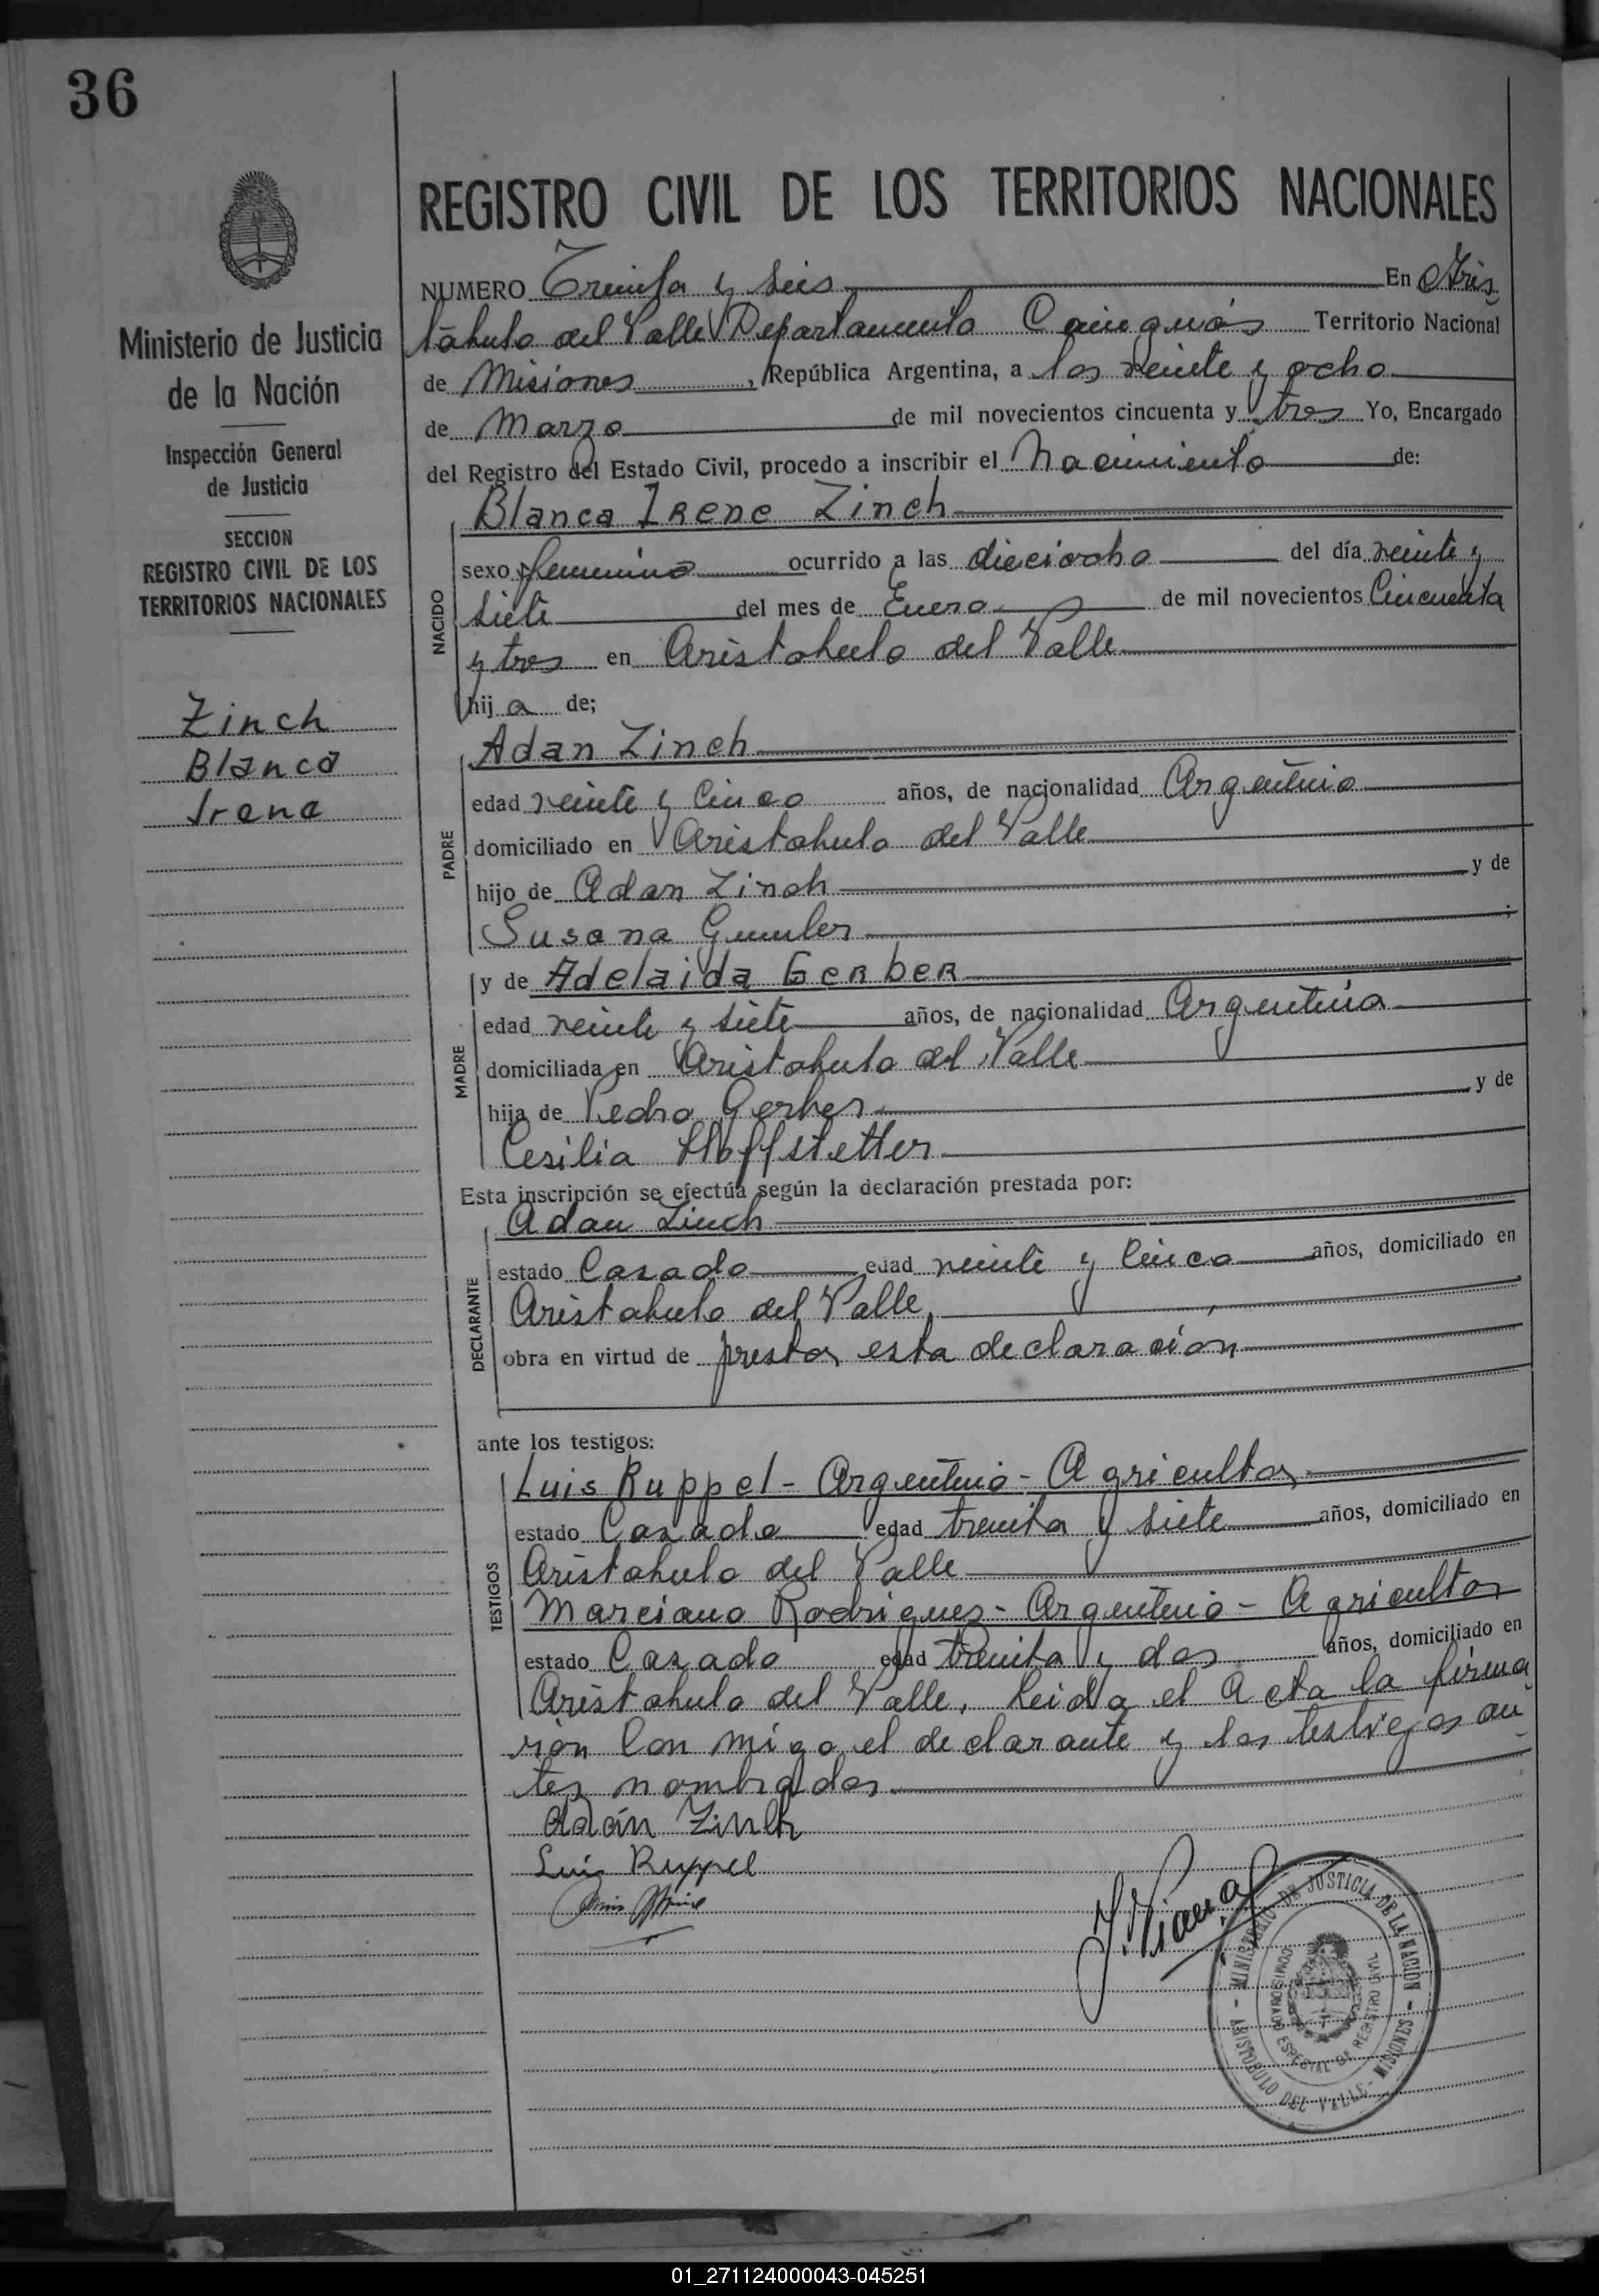 36
REGISTRO CIVIL DE LOS TERRITORIOS NACIONALES
Ministerio de Justicia
de la Nación
Inspección General
de Justicia
SECCION
REGISTRO CIVIL DE LOS
TERRITORIOS NACIONALES
Zinch
Blanca
Irene
NUMERO Treinta y seis En Aris
tóbulo del Valle Departamento Cainguás Territorio Nacional
de Misiones, República Argentina, a los veinte y ocho
de Marzo de mil novecientos cincuenta y tres Yo, Encargado
del Registro del Estado Civil, procedo a inscribir el Nacimiento de:
Blanca Irene Zinch
NACIDO
sexo femenino ocurrido a las dieciocho del día veinte y
siete del mes de Enero de mil novecientos Cincuenta
y tres en Aristobulo del Valle
hija de;
PADRE
Adan Zinch
edad veinte y Cinco años, de nacionalidad Argentino
domiciliado en Aristobulo del Valle
hijo de Adan Zinch y de
Susana
MADRE
y de Adelaida Gerber
edad veinte y siete años, de nacionalidad Argentina
domiciliada en Aristobulo del Valle
hija de Pedro Gerber y de
Cesilia Hoffstetter
Esta inscripción se efectúa según la declaración prestada por:
DECLARANTE
Adan Zinch
estado Casado edad veinte y Cinco años, domiciliado en
Aristobulo del Valle,
obra en virtud de prestar esta declaración
ante los testigos:
TESTIGOS
Luis Ruppel - Argentino - Agricultor
estado Casado edad treinta y siete años, domiciliado en
Aristobulo del Valle
Marciano Rodrigues - Argentino - Agricultor
estado Casado edad treinta y dos años, domiciliado en
Aristobulo del Valle, Leida el Acta la firma
ron Con migo el declarante y los testigos an
tes nombrados
Adán Zinch
Luis Ruppel
J. Viana
MINISTERIO DE JUSTICIA DE LA NACION
COMISIONADO ESPECIAL DE REGISTRO CIVIL
- ARISTOBULO DEL VALLE - MISIONES -
01_271124000043-045251